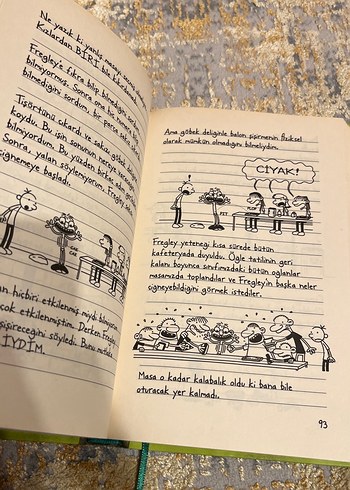 Ne yazık ki yanlış masayı
Kızlardan BİRİ bile
Fregley'e fıkra bilip bilmediğini sordum
bilmiyormuş. Sonra ona bir
bilmediğini sordum, bir parça sakız
Tişörtünü çıkardı ve sakızı göbek
koydu. Bu işin sonunun nereye varacağını
bilmiyordum. Bu yüzden biraz
Sonra, yalan söylemiyorum, Fregley
çiğnemeye başladı.
ÇAK
hiçbiri etkilenmiş miydi bilmiyorum,
çok etkilenmiştim. Derken Fregley
şişireceğini söyledi. Bunu
İYDİM.
Ama göbek deliğinle balon şişirmenin fiziksel
olarak mümkün olmadığını bilmeliydim.
CİYAK!
PIT
Fregley yeteneği kısa sürede bütün
kafeteryada duyuldu. Öğle tatilinin geri
kalanı boyunca sınıfımızdaki bütün oğlanlar
masamızda toplandılar ve Fregley'in başka neler
çiğneyebildiğini görmek istediler.
Masa o kadar kalabalık oldu ki bana bile
oturacak yer kalmadı.
93